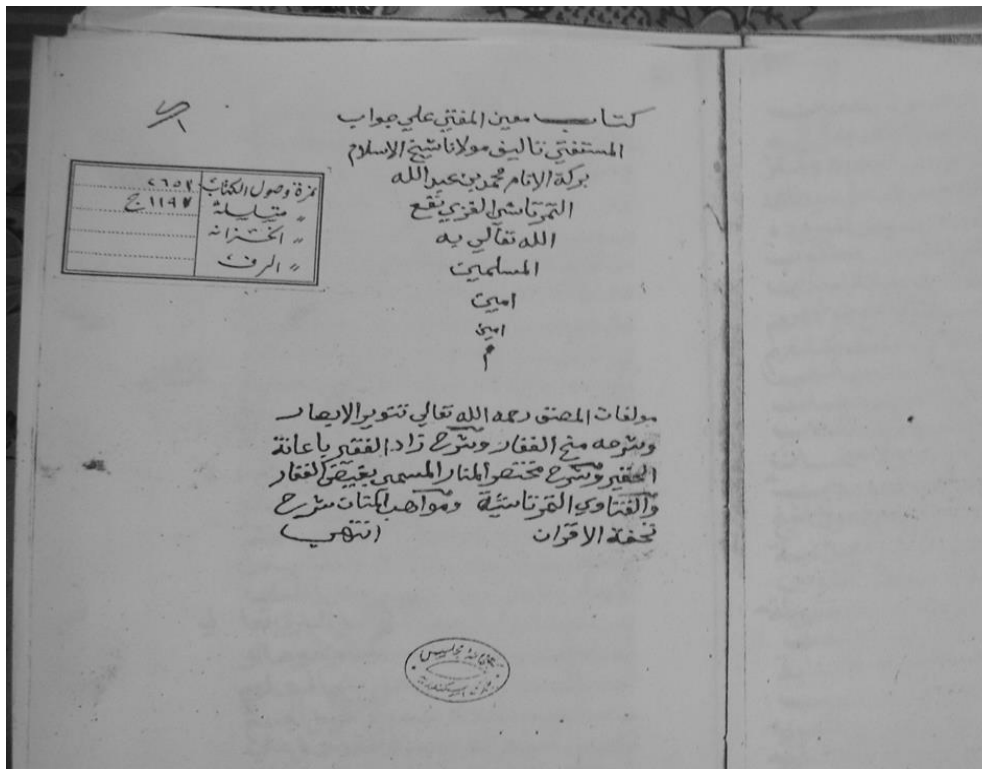 كتاب معين المفتي علي جواب
المستفتي تاليف مولانا شيخ الاسلام
بركة الانام محمد بن عبد الله
التمرتاشي الغزي نفع
الله تعالي به
المسلمين
امين
امين
م
نمرة وصول الكتاب ٢٦٥٢
" متسلسلة ١١٩٧ ج
" الخزانه
" الرف
مولفات المصنف رحمه الله تعالي تنوير الابصار
وشرحه منح الغفار وشرح زاد الفقير باعانة
الحقير وشرح مختصر المنار المسمي بفيض الغفار
والفتاوي التمرتاشية ومواهب المنان شرح
تحفة الاقران انتهي